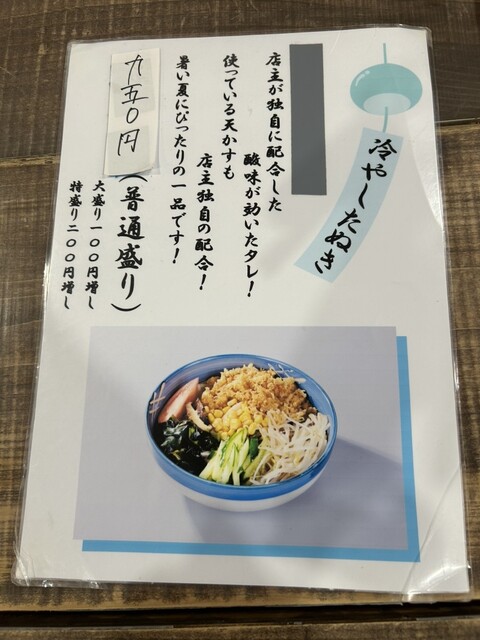 冷やしたぬき
店主が独自に配合した
酸味が効いたタレ！
使っている天かすも
店主独自の配合！
暑い夏にぴったりの一品です！
九五〇円
（普通盛り）
大盛り一〇〇円増し
特盛り二〇〇円増し